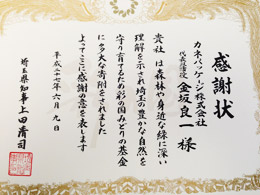 感謝状
カネパッケージ株式会社
代表取締役 金坂良一 様
貴社は森林や身近な緑に深い
理解を示され埼玉の豊かな自然を
守り育てるため彩の国みどりの基金
に多大な寄附をされました
よってここに感謝の意を表します
平成二十七年六月九日
埼玉県知事 上田清司